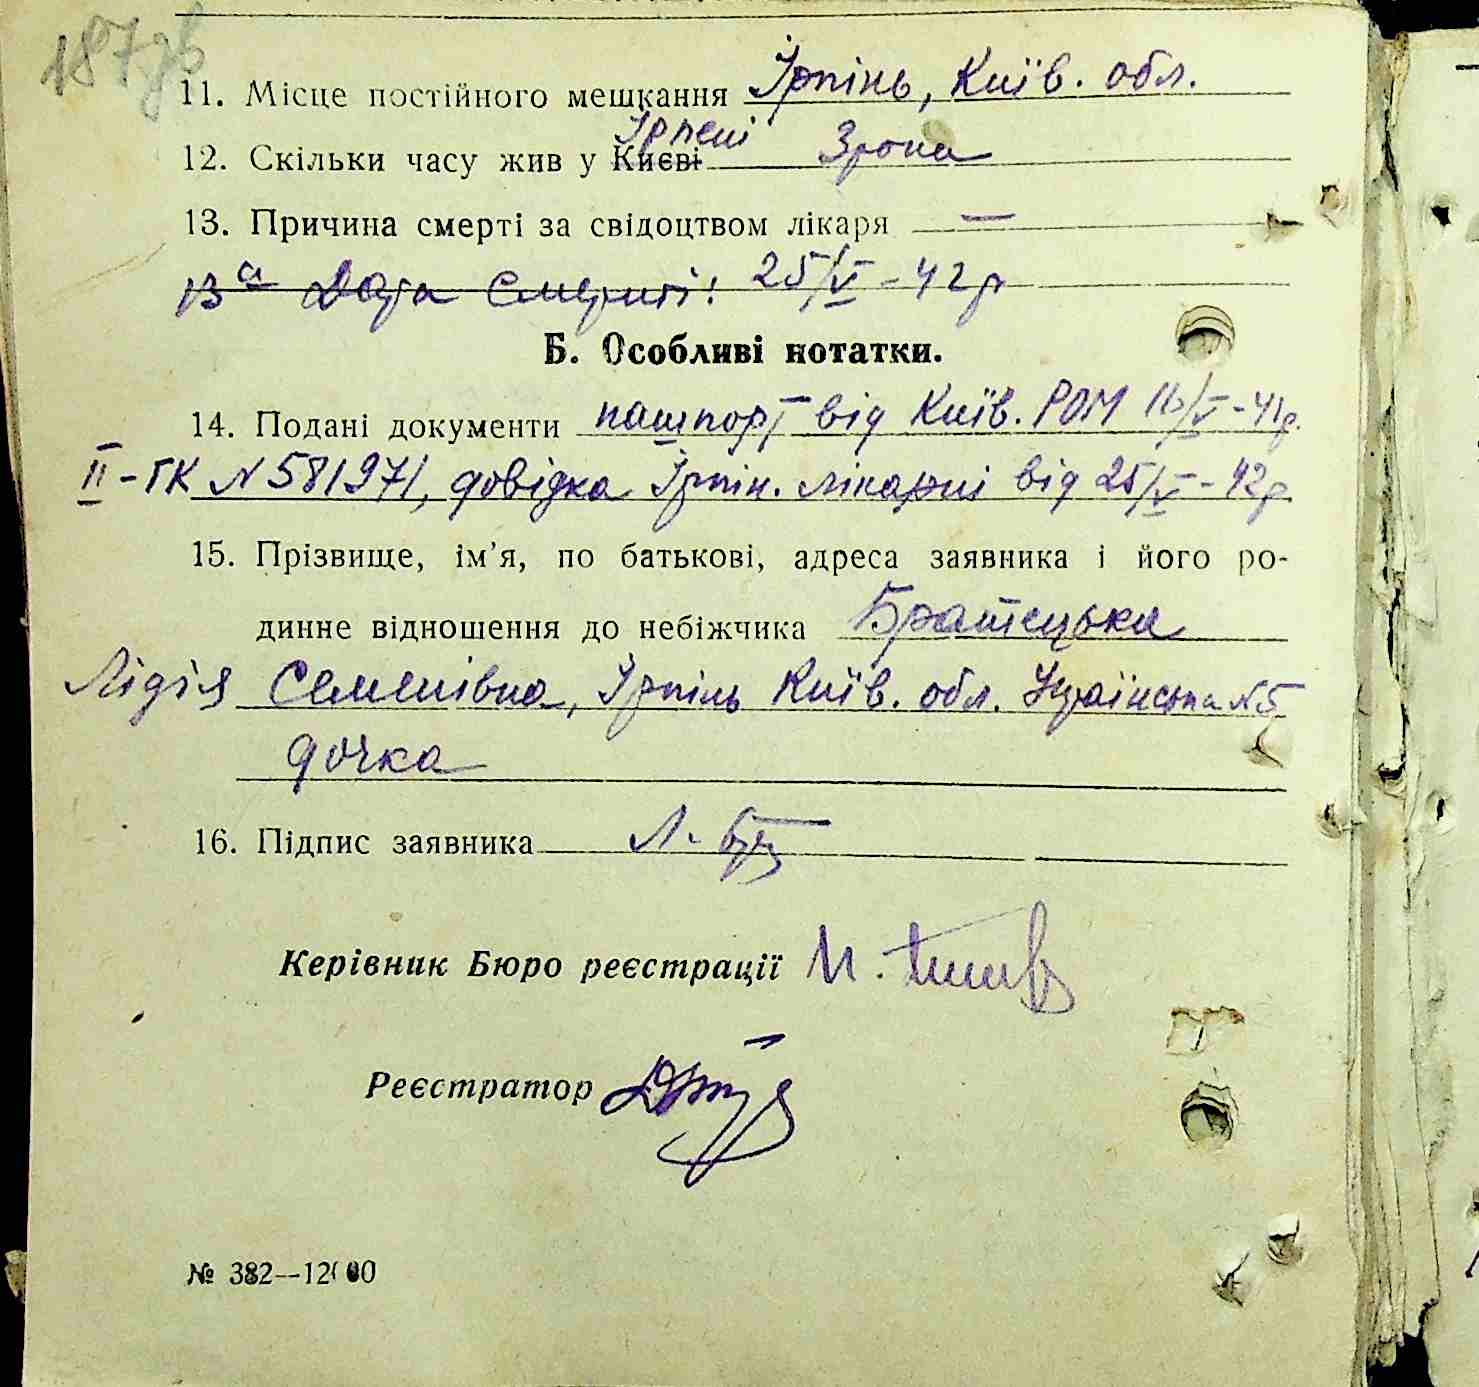 187зв
11. Місце постійного мешкання Ірпінь, Київ. обл.
Ірпені
12. Скільки часу жив у Києві 3 рока
13. Причина смерті за свідоцтвом лікаря —
13а Дата смерті: 25/V - 42р
Б. Особливі нотатки.
14. Подані документи пашпорт від Київ. РОМ 16/V-41р.
II-ГК N 581971, довідка Ірпін. лікарні від 25/V - 42р.
15. Прізвище, ім’я, по батькові, адреса заявника і його ро-
динне відношення до небіжчика Братецька
Лідія Семенівна, Ірпінь Київ. обл. Українська N 5
дочка
16. Підпис заявника Л.
Керівник Бюро реєстрації
Реєстратор
№ 382—12000